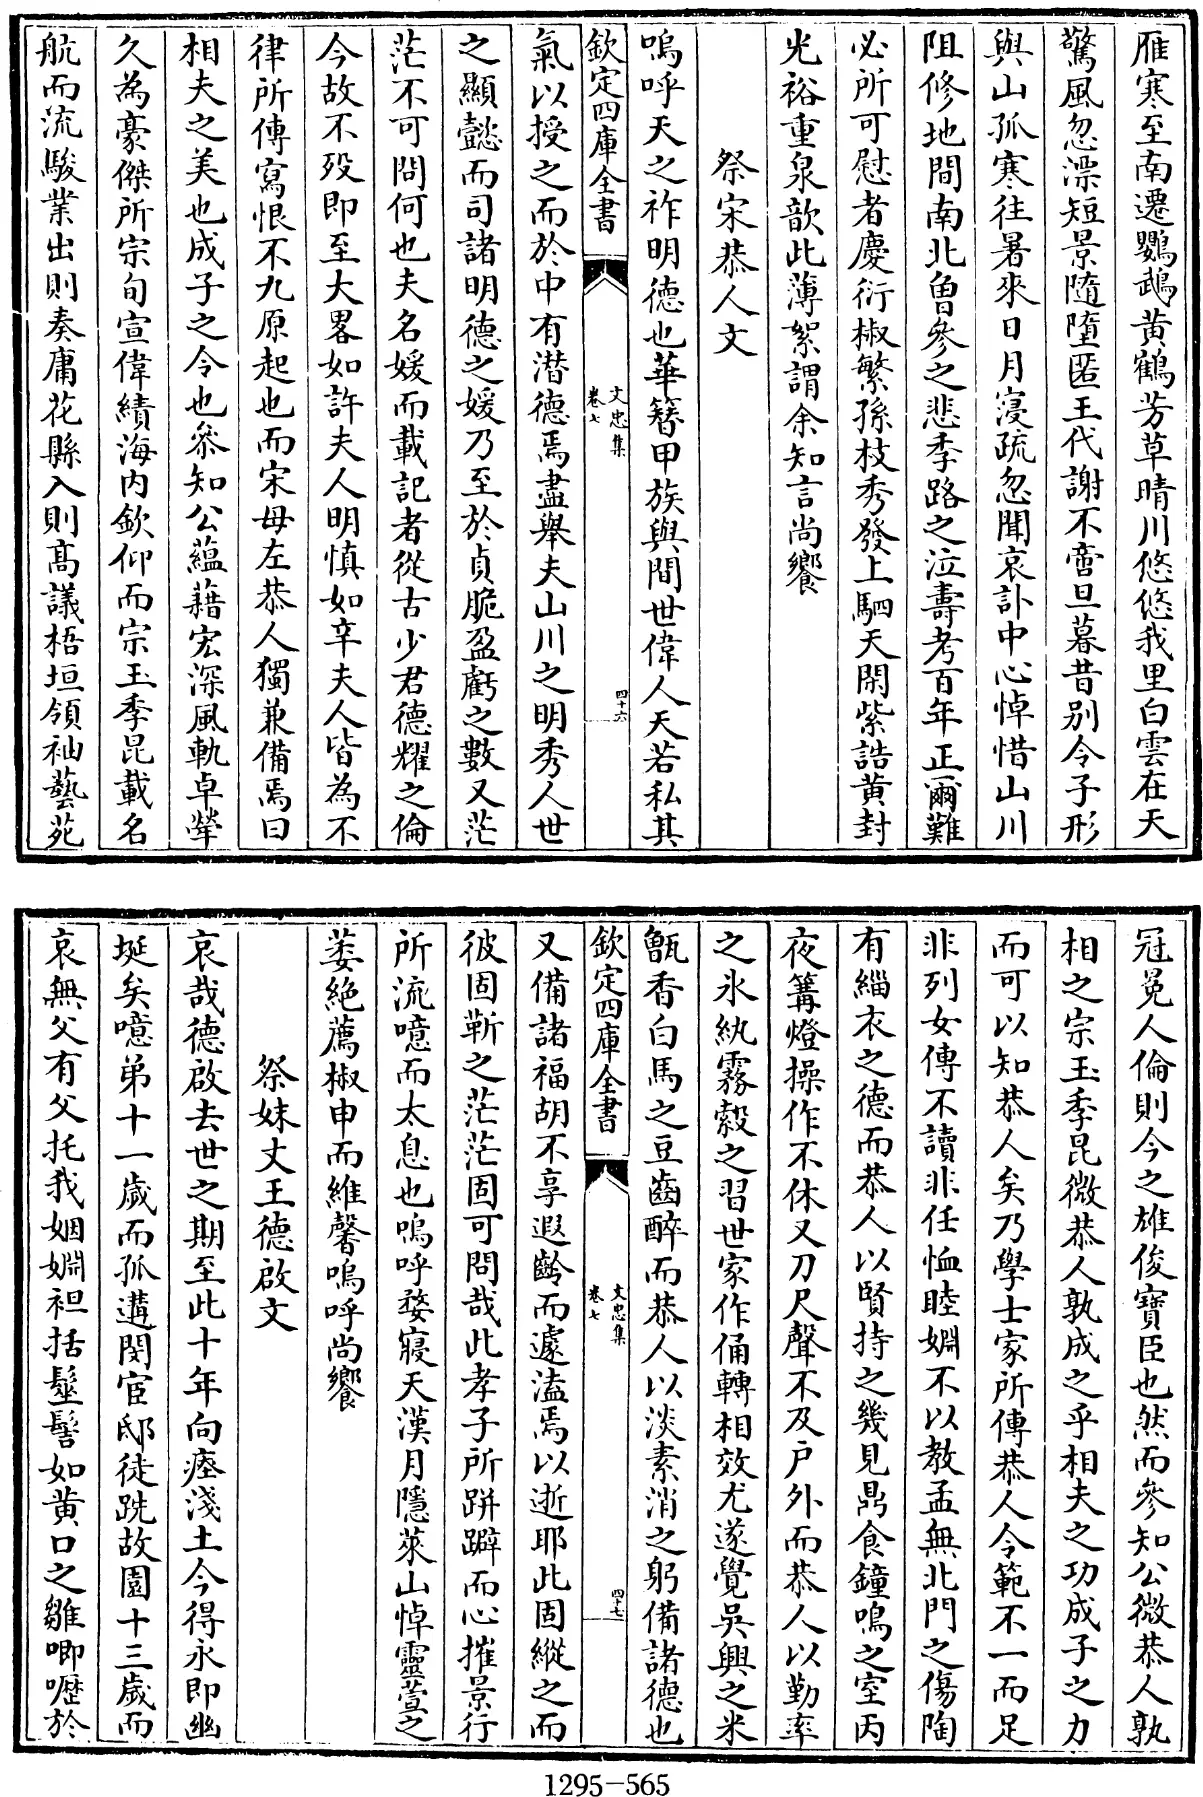 雁寒至南遷鸚鵡黄鶴芳草晴川悠悠我里白雲在天
驚風忽漂短景隨墮匿王代謝不啻旦暮昔别令子形
與山孤寒往暑來日月寖疏忽聞哀訃中心悼惜山川
阻修地間南北曾參之悲季路之泣壽考百年正爾難
必所可慰者慶衍椒繁孫枝秀發上駟天閑紫誥黄封
光裕重泉歆此薄絮謂余知言尚饗
祭宋恭人文
嗚呼天之祚明德也華簮甲族與間世偉人天若私其
欽定四庫全書
文忠集
卷七
四十六
氣以授之而於中有潜德焉盡舉夫山川之明秀人世
之顯懿而司諸明德之媛乃至於貞脆盈虧之數又茫
茫不可問何也夫名媛而載記者從古少君德耀之倫
今故不殁即至大畧如許夫人明慎如辛夫人皆為不
律所傳寫恨不九原起也而宋母左恭人獨兼備焉曰
相夫之美也成子之令也叅知公藴藉宏深風軌卓犖
久為豪傑所宗旬宣偉績海内欽仰而宗玉季昆載名
航而流駿業出則奏庸花縣入則髙議梧垣領袖藝苑
冠冕人倫則今之雄俊寶臣也然而參知公微恭人孰
相之宗玉季昆微恭人孰成之乎相夫之功成子之力
而可以知恭人矣乃學士家所傳恭人令範不一而足
非列女傳不讀非任恤睦婣不以教孟無北門之傷陶
有緇衣之德而恭人以賢持之幾見鼎食鐘鳴之室丙
夜篝燈操作不休又刀尺聲不及户外而恭人以勤率
之氷紈霧縠之習世家作俑轉相效尤遂覺吳興之米
甑香白馬之豆齒醉而恭人以淡素消之躬備諸德也
欽定四庫全書
文忠集
卷七
四十七
又備諸福胡不享遐齡而遽溘焉以逝耶此固縱之而
彼固靳之茫茫固可問哉此孝子所跰躃而心摧景行
所流噫而太息也嗚呼婺寢天漢月隱萊山悼靈萱之
萎絶薦椒申而維馨嗚呼尚饗
祭妹丈王德啟文
哀哉德啟去世之期至此十年向瘞淺土今得永即幽
埏矣噫弟十一歲而孤遘閔宦邸徒跣故園十三歲而
哀無父有父托我姻婣袒括髽髻如黄口之雛唧嚦於
1295-565